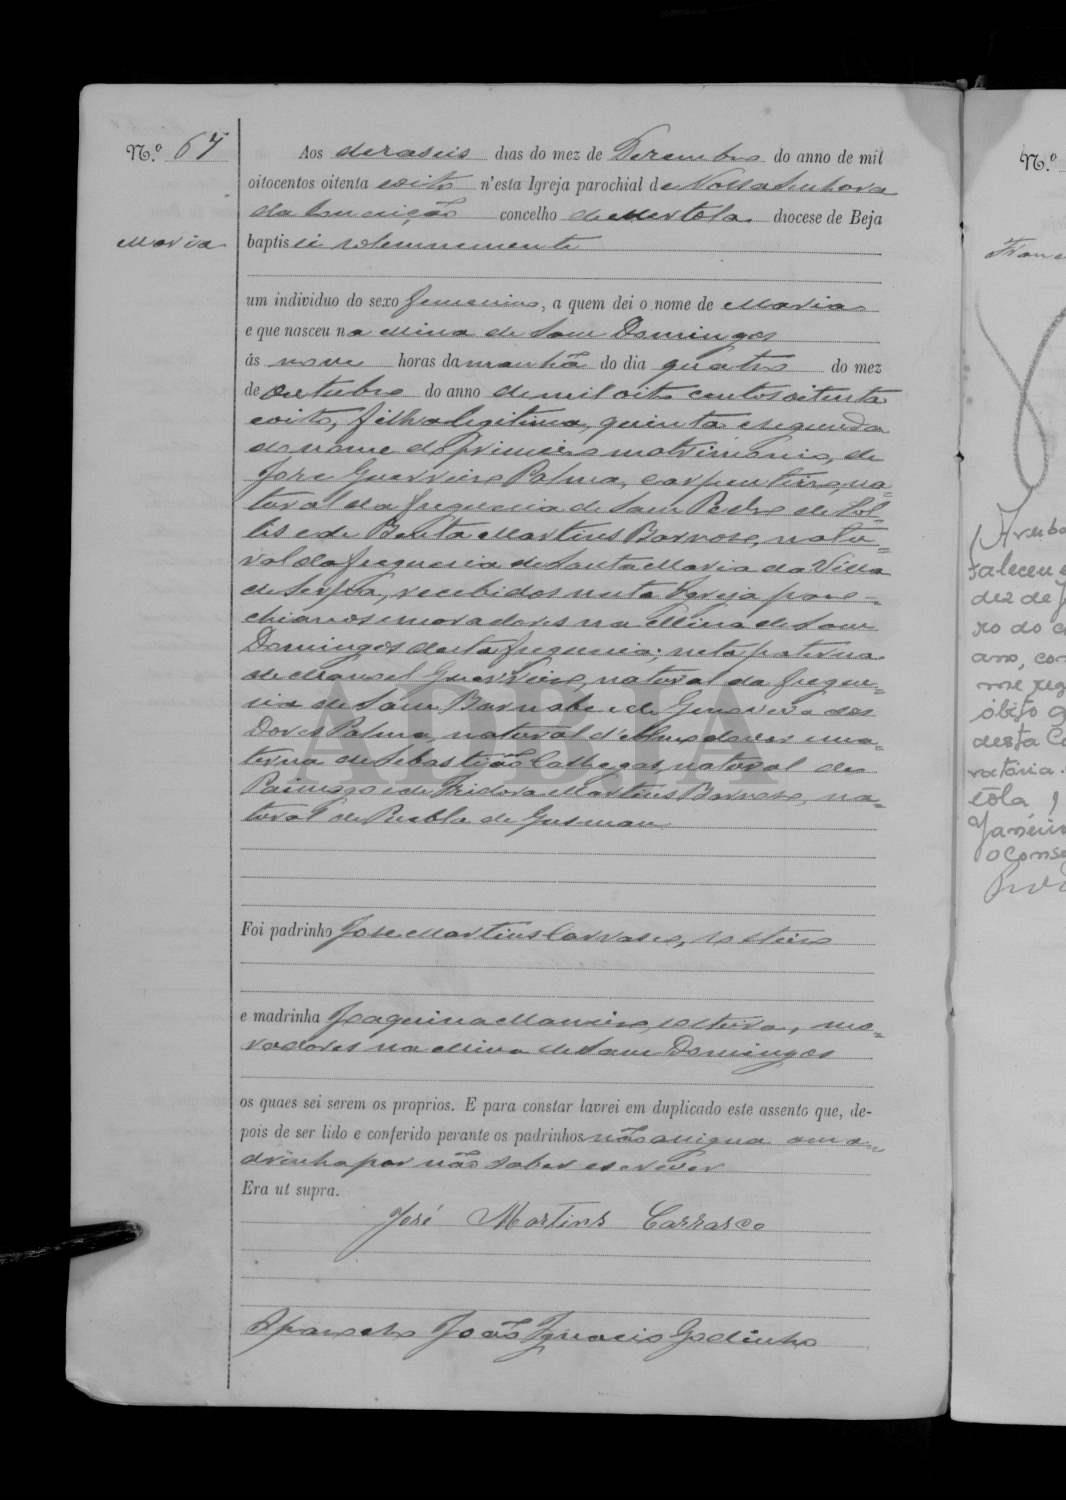 N.º 67
Maria
Aos deraseis dias do mez de Dezembro do anno de mil
oitocentos oitenta eoito n'esta Igreja parochial de Nossa Senhora
da Conceição concelho de Mertola diocese de Beja
baptisei solemnemente
um individuo do sexo femenino, a quem dei o nome de Maria
e que nasceu na Mina de Sam Domingos
ás nove horas da manhã do dia quatro do mez
de Outubro do anno de mil oito centos oitenta
eoito, filha legitima, quinta e segunda
do nome do primeiro matrimonio, de
Jose Guerreiro Palma, carpinteiro, na=
tural da freguesia de Sam Pedro de Sol=
lis e de Benta Martins Barroso, natu=
ral da freguesia de Santa Maria da Villa
de Serpa, recebidos nesta Igreja paro=
chianos e moradores na Mina de Sam
Domingos desta freguesia; neta paterna
de Manoel Guerreiro, natural da fregue=
sia de Sam Barnabe e de Genoveva das
Dores Palma, natural d'Almodovar e ma=
terna de Sebastião natural de
Paimogo e de Izidora Martins Barroso, na=
tural de Puebla de Gusman
Foi padrinho Jose Martins Carrasco, solteiro
e madrinha Joaquina solteira, mo=
radores na Mina de Sam Domingos
os quaes sei serem os proprios. E para constar lavrei em duplicado este assento que, de-
pois de ser lido e conferido perante os padrinhos não asigna a ma=
drinha por não saber escrever
Era ut supra.
José Martins Carrasco
O parocho João Ignacio Godinho
ADBJA
N.º
Franc
faleceu
dez de J
ro do c
ano, con
me reg
óbito
desta Co
vatória.
tola,
Janeiro
O Conse